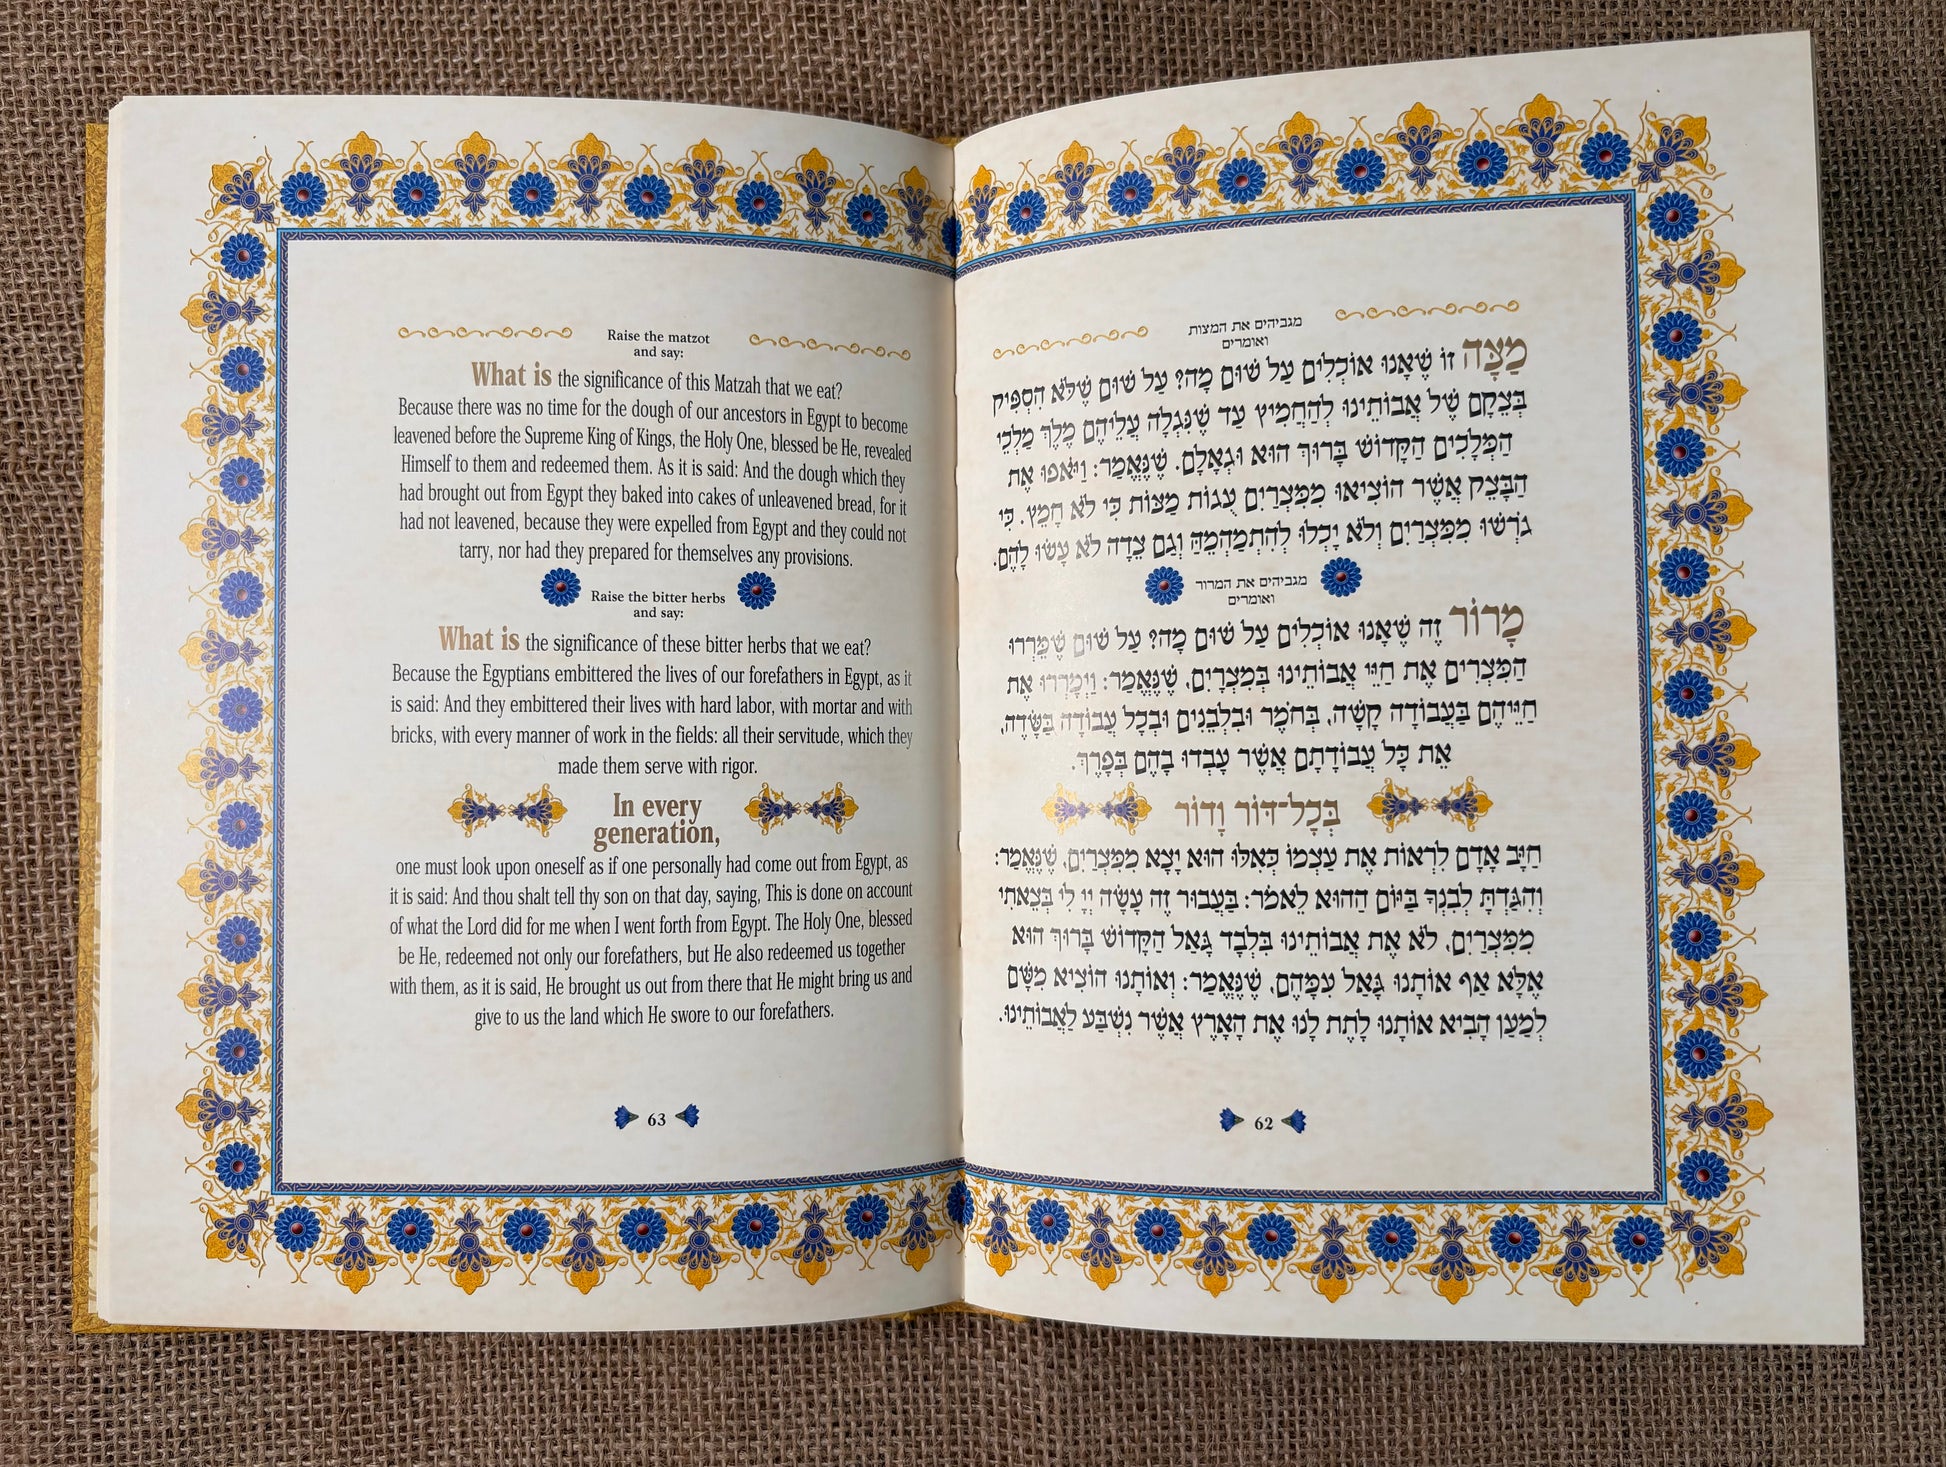 Raise the matzot
and say:
What is the significance of this Matzah that we eat?
Because there was no time for the dough of our ancestors in Egypt to become
leavened before the Supreme King of Kings, the Holy One, blessed be He, revealed
Himself to them and redeemed them. As it is said: And the dough which they
had brought out from Egypt they baked into cakes of unleavened bread, for it
had not leavened, because they were expelled from Egypt and they could not
tarry, nor had they prepared for themselves any provisions.
Raise the bitter herbs
and say:
What is the significance of these bitter herbs that we eat?
Because the Egyptians embittered the lives of our forefathers in Egypt, as it
is said: And they embittered their lives with hard labor, with mortar and with
bricks, with every manner of work in the fields: all their servitude, which they
made them serve with rigor.
In every
generation,
one must look upon oneself as if one personally had come out from Egypt, as
it is said: And thou shalt tell thy son on that day, saying, This is done on account
of what the Lord did for me when I went forth from Egypt. The Holy One, blessed
be He, redeemed not only our forefathers, but He also redeemed us together
with them, as it is said, He brought us out from there that He might bring us and
give to us the land which He swore to our forefathers.
63
מגביהים את המצות
ואומרים
מַצָּה זוֹ שֶׁאָנוּ אוֹכְלִים עַל שׁוּם מָה? עַל שׁוּם שֶׁלֹּא הִסְפִּיק
בְּצֵקָם שֶׁל אֲבוֹתֵינוּ לְהַחֲמִיץ עַד שֶׁנִּגְלָה עֲלֵיהֶם מֶלֶךְ מַלְכֵי
הַמְּלָכִים הַקָּדוֹשׁ בָּרוּךְ הוּא וּגְאָלָם. שֶׁנֶּאֱמַר: וַיֹּאפוּ אֶת
הַבָּצֵק אֲשֶׁר הוֹצִיאוּ מִמִּצְרַיִם עֻגוֹת מַצּוֹת כִּי לֹא חָמֵץ. כִּי
גֹרְשׁוּ מִמִּצְרַיִם וְלֹא יָכְלוּ לְהִתְמַהְמֵהַּ וְגַם צֵדָה לֹא עָשׂוּ לָהֶם.
מגביהים את המרור
ואומרים
מָרוֹר זֶה שֶׁאָנוּ אוֹכְלִים עַל שׁוּם מָה? עַל שׁוּם שֶׁמֵּרְרוּ
הַמִּצְרִים אֶת חַיֵּי אֲבוֹתֵינוּ בְּמִצְרָיִם, שֶׁנֶּאֱמַר: וַיְמָרְרוּ אֶת
חַיֵּיהֶם בַּעֲבוֹדָה קָשָׁה, בְּחֹמֶר וּבִלְבֵנִים וּבְכָל עֲבוֹדָה בַּשָּׂדֶה,
אֵת כָּל עֲבוֹדָתָם אֲשֶׁר עָבְדוּ בָהֶם בְּפָרֶךְ.
בְּכָל־דּוֹר וָדוֹר
חַיָּב אָדָם לִרְאוֹת אֶת עַצְמוֹ כְּאִלּוּ הוּא יָצָא מִמִּצְרַיִם, שֶׁנֶּאֱמַר:
וְהִגַּדְתָּ לְבִנְךָ בַּיּוֹם הַהוּא לֵאמֹר: בַּעֲבוּר זֶה עָשָׂה יְיָ לִי בְּצֵאתִי
מִמִּצְרַיִם, לֹא אֶת אֲבוֹתֵינוּ בִּלְבָד גָּאַל הַקָּדוֹשׁ בָּרוּךְ הוּא
אֶלָּא אַף אוֹתָנוּ גָּאַל עִמָּהֶם, שֶׁנֶּאֱמַר: וְאוֹתָנוּ הוֹצִיא מִשָּׁם
לְמַעַן הָבִיא אוֹתָנוּ לָתֶת לָנוּ אֶת הָאָרֶץ אֲשֶׁר נִשְׁבַּע לַאֲבוֹתֵינוּ.
62